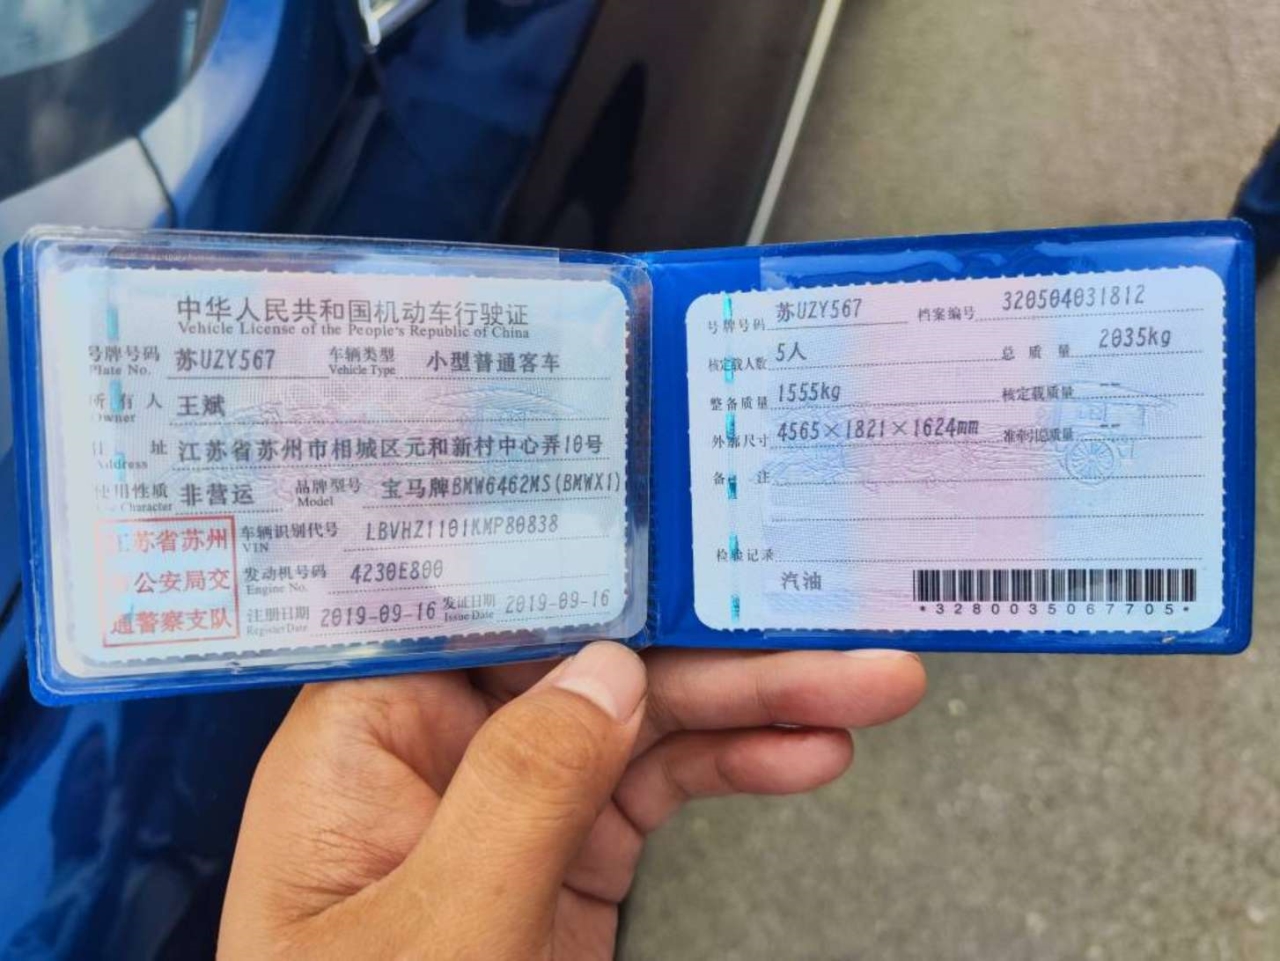 中华人民共和国机动车行驶证
Vehicle License of the People's Republic of China
号牌号码 苏UZY567 车辆类型 小型普通客车
Plate No. Vehicle Type
所有人 王斌
Owner
住址 江苏省苏州市相城区元和新村中心弄10号
Address
使用性质 非营运 品牌型号 宝马牌BMW6462MS(BMWX1)
Use Character Model
江苏省苏州
市公安局交
通警察支队
车辆识别代号 LBVHZ1101KMP80838
VIN
发动机号码 4230E800
Engine No.
注册日期 2019-09-16 发证日期 2019-09-16
Register Date Issue Date
号牌号码 苏UZY567 档案编号 320504031812
核定载人数 5人 总质量 2035kg
整备质量 1555kg 核定载质量 --
外廓尺寸 4565×1821×1624mm 准牵引总质量 --
备注
检验记录
汽油
*3280035067705*